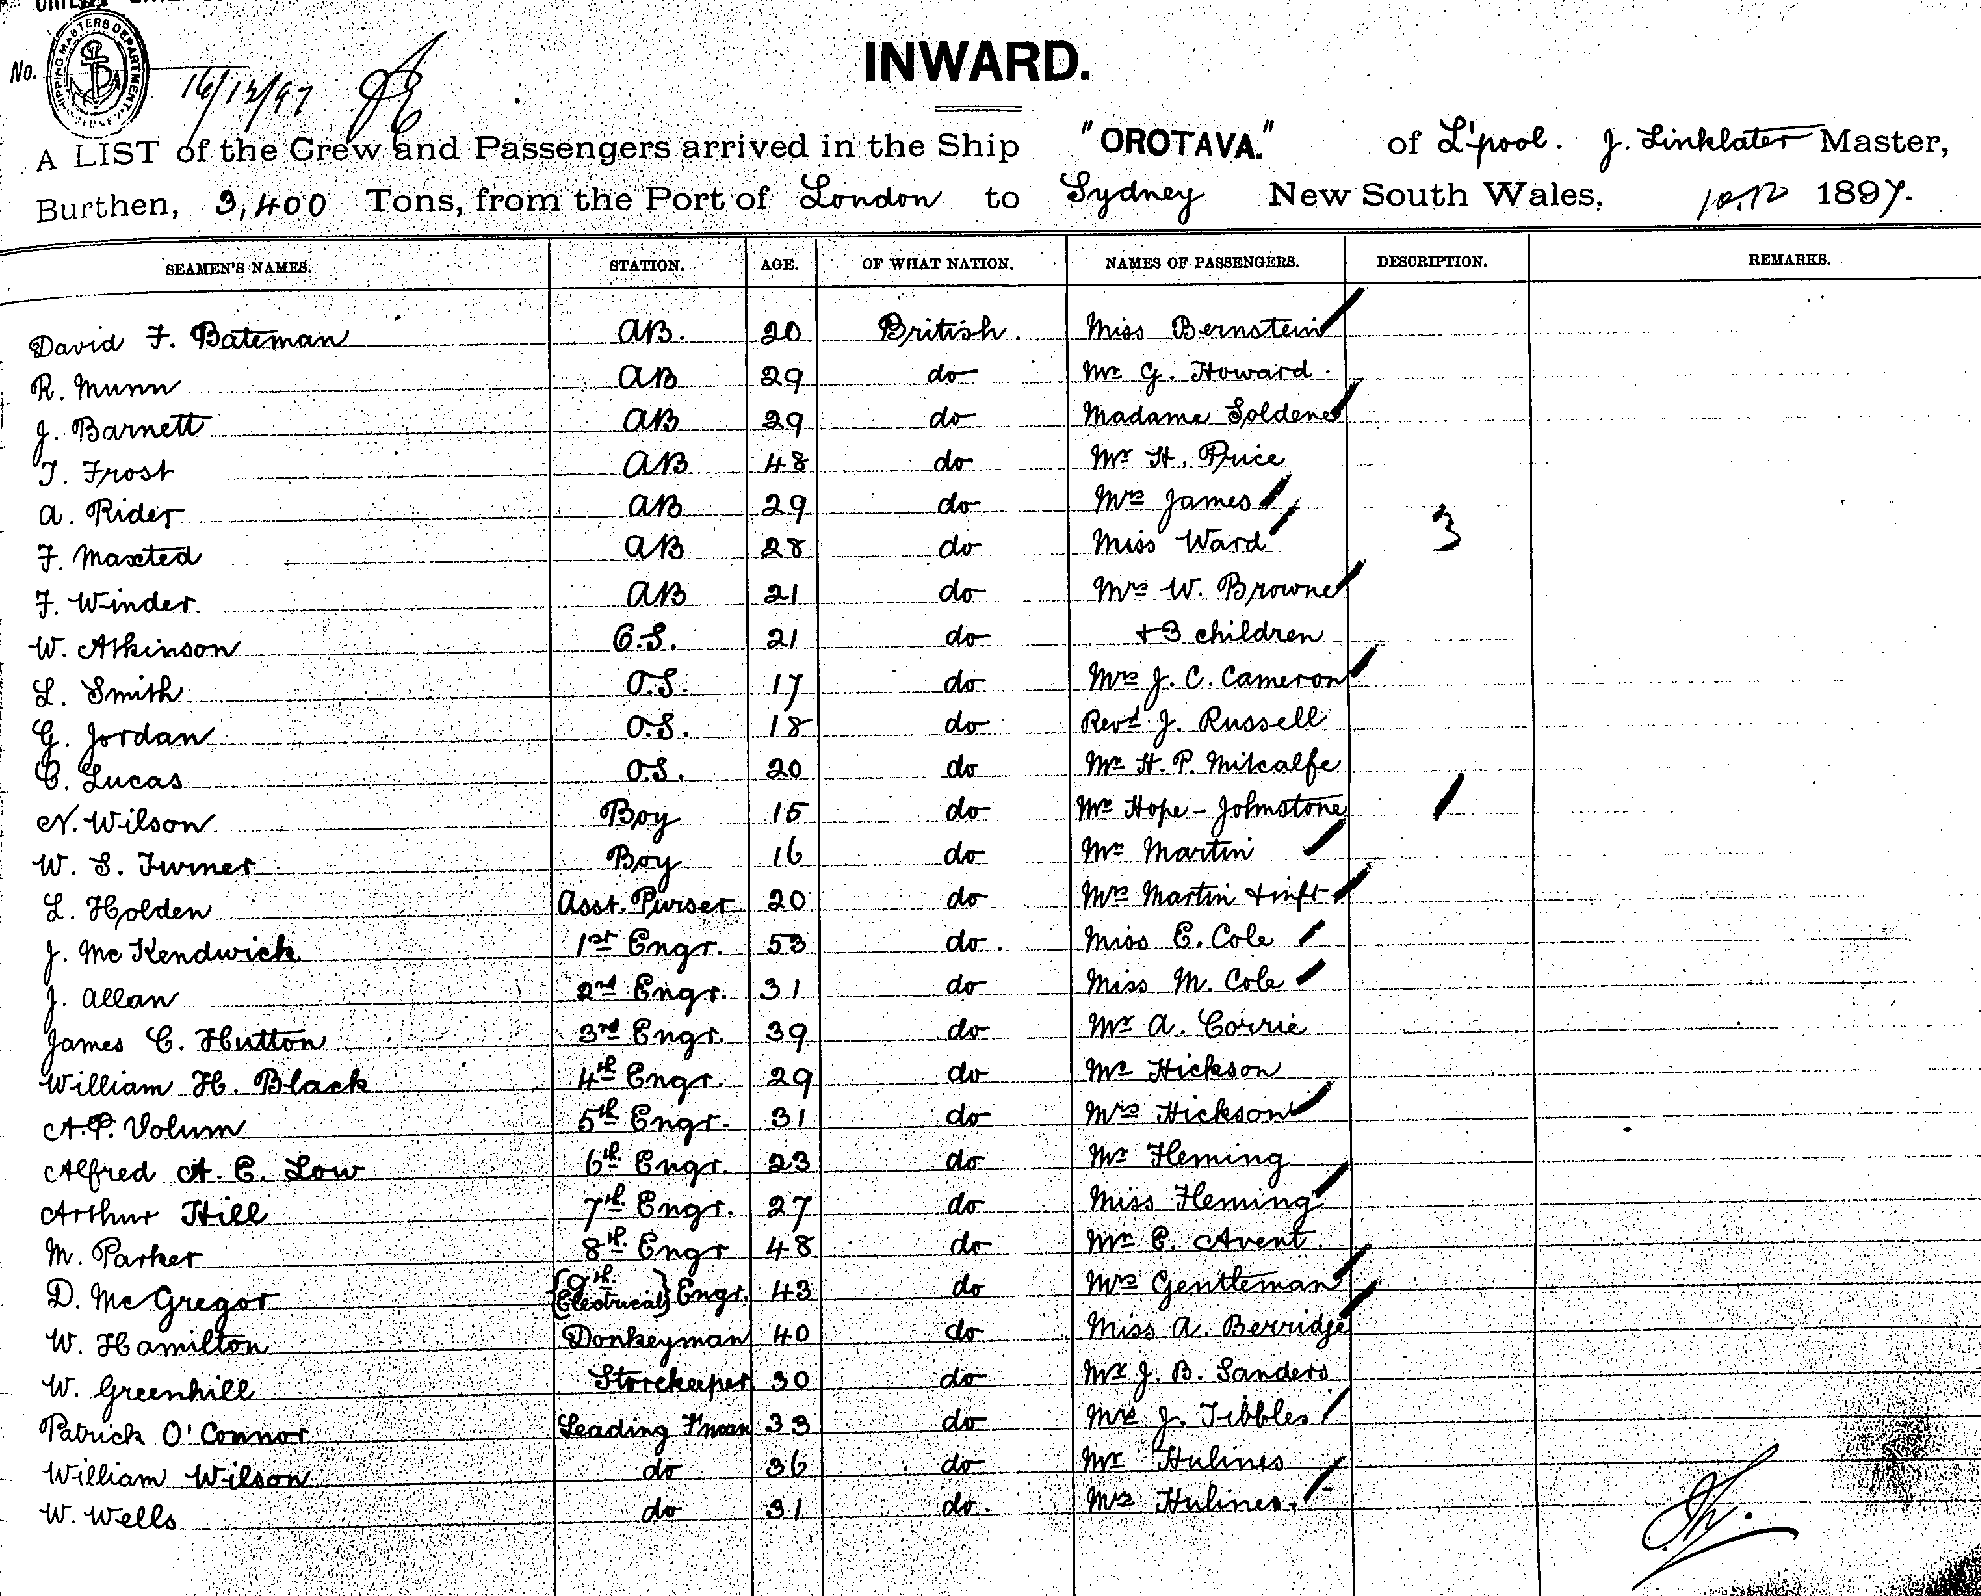 No.
SHIPPING MASTERS DEPARTMENT
16/12/97
INWARD.
A LIST of the Crew and Passengers arrived in the Ship "OROTAVA." of L'pool. J. Linklater Master,
Burthen, 3,400 Tons, from the Port of London to Sydney New South Wales, 10.12 1897.
SEAMEN'S NAMES. STATION. AGE. OF WHAT NATION. NAMES OF PASSENGERS. DESCRIPTION. REMARKS.
David F. Bateman AB. 20 British. Miss Bernstein
R. Munn AB 29 do Mr G. Howard
J. Barnett AB 29 do Madame Soldene
T. Frost AB 48 do Mr H. Price
A. Rider AB 29 do Mrs James
F. Maxted AB 28 do Miss Ward 3
F. Winder AB 21 do Mrs W. Browne
W. Atkinson O.S. 21 do +3 children
L. Smith O.S. 17 do Mrs J. C. Cameron
G. Jordan O.S. 18 do Revd J. Russell
C. Lucas O.S. 20 do Mr H. P. Mitcalfe
N. Wilson Boy 15 do Mr Hope-Johnstone
W. S. Turner Boy 16 do Mr Martin
L. Holden Asst. Purser 20 do Mrs Martin + inft
J. McKendwick 1st Engr. 53 do. Miss E. Cole
J. Allan 2nd Engr. 31 do Miss M. Cole
James C. Hutton 3rd Engr. 39 do Mr A. Corrie
William H. Black 4th Engr. 29 do Mr Hickson
A.P. Volum 5th Engr. 31 do Mrs Hickson
Alfred A. E. Low 6th Engr. 23 do Mr Fleming
Arthur Hill 7th Engr. 27 do Miss Fleming
M. Parker 8th Engr 48 do Mr E. Avent
D. McGregor {9th Electrical} Engr. 43 do Mrs Gentleman
W. Hamilton Donkeyman 40 do Miss A. Berridge
W. Greenhill Storekeeper 30 do Mr J. B. Sanders
Patrick O'Connor Leading F'man 33 do Mrs J. Tibbles
William Wilson do 36 do Mr Hulines
W. Wells do 31 do. Mrs Hulines.